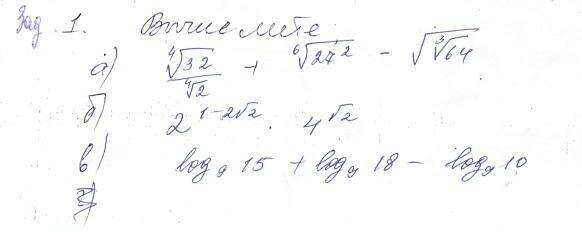 Зад. 1. Вычислите
а) ⁴√32 / ⁴√2 + ⁶√27² - √³√64
б) 2^(1-2√2) · 4^√2
в) log₉ 15 + log₉ 18 - log₉ 10